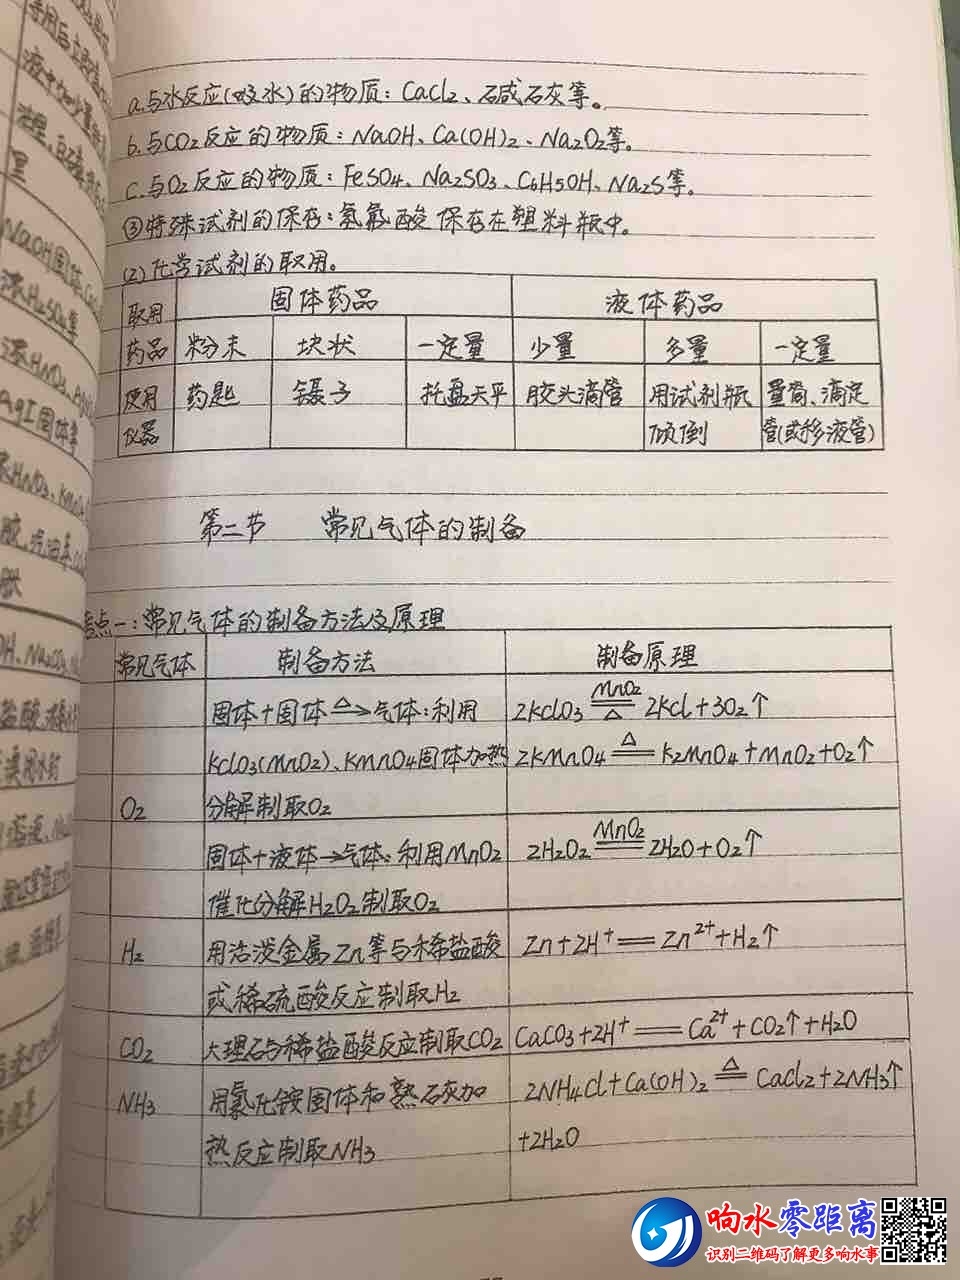 a.与水反应(吸水)的物质：CaCl2、石碱石灰等。
b.与CO2反应的物质：NaOH、Ca(OH)2、Na2O2等。
c.与O2反应的物质：FeSO4、Na2SO3、C6H5OH、Na2S等。
③特殊试剂的保存：氢氟酸保存在塑料瓶中。
(2)化学试剂的取用。
取用药品 固体药品 液体药品
粉末 块状 一定量 少量 多量 一定量
使用仪器 药匙 镊子 托盘天平 胶头滴管 用试剂瓶 量筒、滴定
倾倒 管(或移液管)
第二节 常见气体的制备
考点一:常见气体的制备方法及原理
常见气体 制备方法 制备原理
固体+固体 △→ 气体:利用 2KClO3 MnO2══△ 2KCl+3O2↑
KClO3(MnO2)、KMnO4固体加热 2KMnO4 △══ K2MnO4+MnO2+O2↑
O2 分解制取O2
固体+液体→气体:利用MnO2 2H2O2 MnO2══ 2H2O+O2↑
催化分解H2O2制取O2
H2 用活泼金属Zn等与稀盐酸 Zn+2H+══Zn2++H2↑
或稀硫酸反应制取H2
CO2 大理石与稀盐酸反应制取CO2 CaCO3+2H+══Ca2++CO2↑+H2O
NH3 用氯化铵固体和熟石灰加 2NH4Cl+Ca(OH)2 △══ CaCl2+2NH3↑
热反应制取NH3 +2H2O
响水零距离
识别二维码了解更多响水事